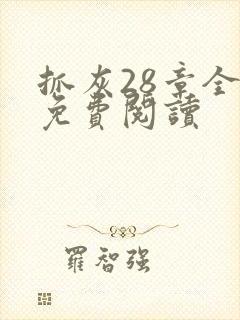 抓灰28章全
免費閱讀
羅智强